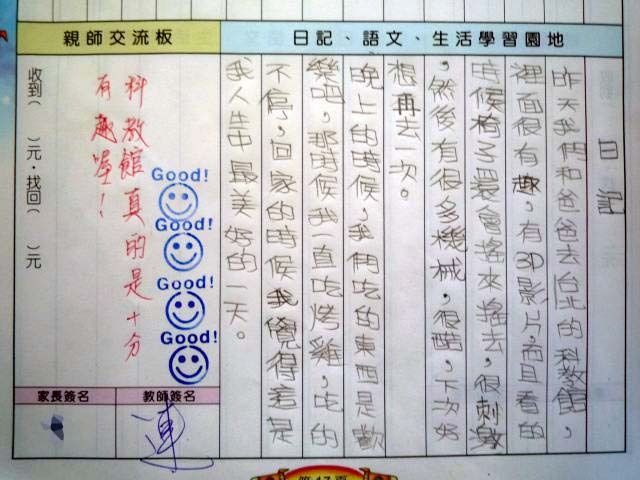 日記、語文、生活學習園地
親師交流板
日記
昨天我們和爸爸去台北的科教館，
裡面很有趣，有3D影片，而且看的
時候椅子還會搖來搖去，很刺激
，然後有很多機械，很酷，下次好
想再去一次。
晚上的時候，我們吃的東西是歡
樂吧，那時候我一直吃烤雞，吃的
不停，回家的時候我覺得這是
我人生中最美好的一天。
科教館真的是十分
有趣喔！
Good!
Good!
Good!
Good!
收到（　）元．找回（　）元
教師簽名
家長簽名
連
第17頁